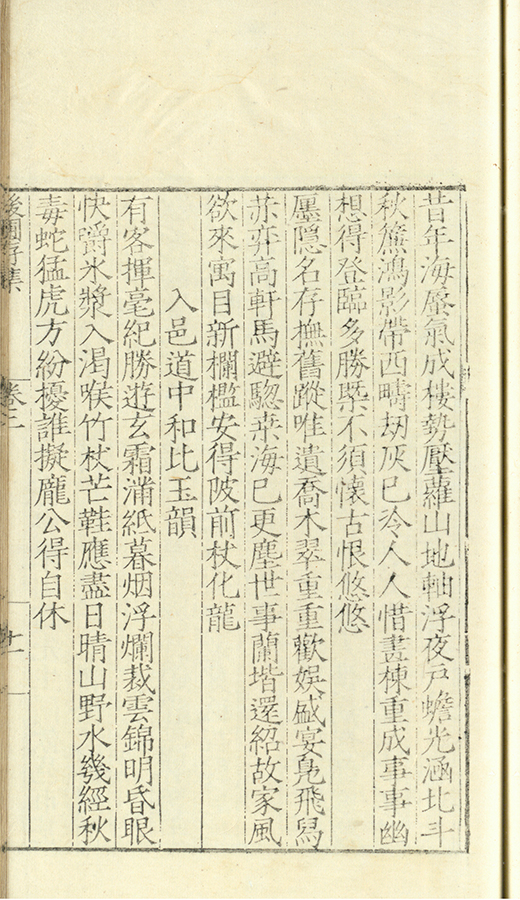 昔年海蜃氣成樓勢壓蘿山地軸浮夜戶蟾光涵北斗
秋簾鴻影帶西疇刼灰已冷人人惜畫棟重成事事幽
想得登臨多勝槩不須懷古恨悠悠
蜃隱名存撫舊蹤唯遺喬木翠重重歡娛盛宴鳬飛舄
弈高軒馬避驄桒海已更塵世事蘭堦還紹故家風
欲來寓目新欄檻安得陂前杖化龍
入邑道中和比玉韻
有客揮毫紀勝遊玄霜滿紙暮烟浮爛裁雲錦明昏眼
快爵氷漿入渴喉竹杖芒鞋應盡日晴山野水幾經秋
毒蛇猛虎方紛擾誰擬龐公得自休
集
卷
十一